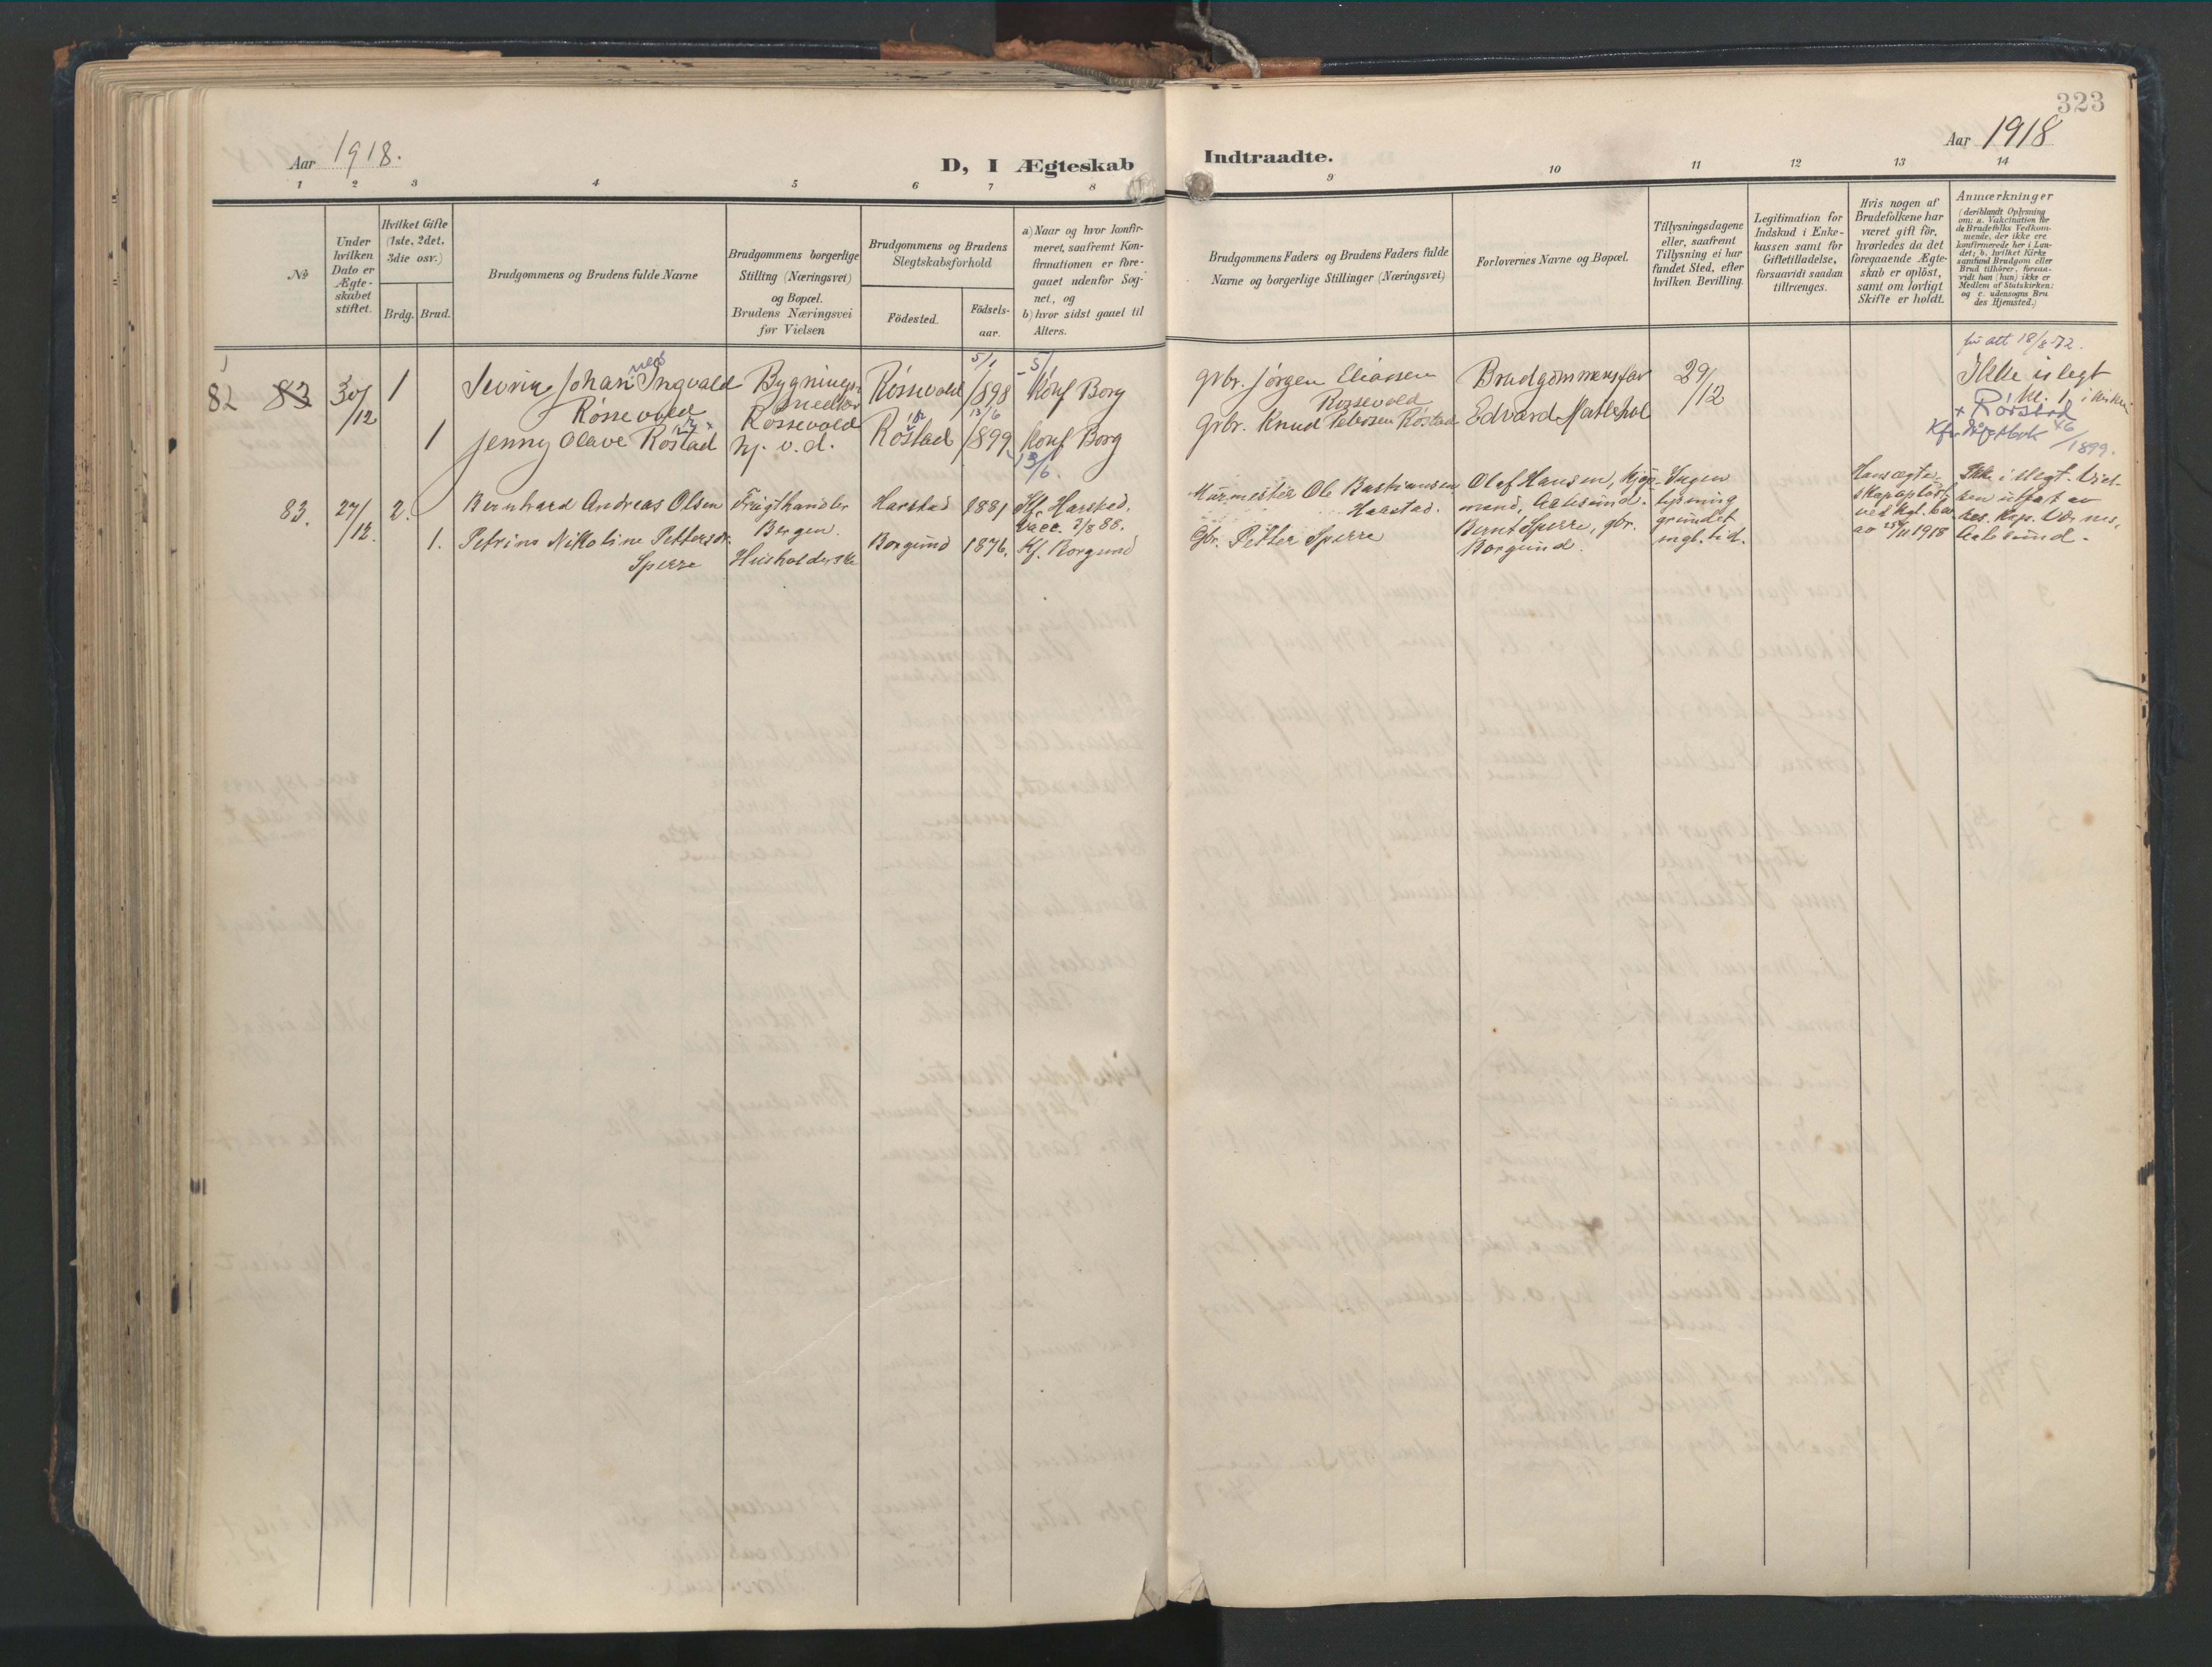 323
Aar 1918.
Aar 1918
D, I Ægteskab
Indtraadte.
1 2 3 4 5 6 7 8
9 10 11 12 13 14
No
Under
hvilken
Dato er
Ægte-
skabet
stiftet.
Hvilket Gifte
(1ste, 2det,
3die osv.)
Brdg. Brud.
Brudgommens og Brudens fulde Navne
Brudgommens borgerlige
Stilling (Næringsvei)
og Bopæl.
Brudens Næringsvei
før Vielsen
Brudgommens og Brudens
Slegtskabsforhold
Födested.
Födsels-
aar.
a) Naar og hvor konfir-
meret, saafremt Kon-
firmationen er fore-
gaaet udenfor Sog-
net, og
b) hvor sidst gaaet til
Alters.
Brudgommens Faders og Brudens Faders fulde
Navne og borgerlige Stillinger (Næringsvei)
Forlovernes Navne og Bopæl.
Tillysningsdagene
eller, saafremt
Tillysning ei har
fundet Sted, efter
hvilken Bevilling.
Legitimation for
Indskud i Enke-
kassen samt for
Giftetilladelse,
forsaavidt saadan
tiltrænges.
Hvis nogen af
Brudefolkene har
været gift för,
hvorledes da det
foregaaende Ægte-
skab er oplöst,
samt om lovligt
Skifte er holdt.
Anmærkninger
(deriblandt Oplysning
om: a. Vakcination for
de Brudefolks Vedkom-
mende, der ikke ere
konfirmerede her i Lan-
det; b. hvilket Kirke
samfund Brudgom eller
Brud tilhörer, forsaa-
vidt han (hun) ikke er
Medlem af Statskirken;
og c. udensogns Bru
des Hjemsted.)
82 83 30/12 1
Johan Ingvald
Røssevold
Bygnings
Røssevold
Røssevold
5/1 1898
5/1
Konf Borg
grbr. Jørgen Eliassen
Rossevold
Brudgommens far
29/12
18/8-72.
Ikke i slegt
1 Jenny Olave Røstad
hj. v. d.
Røstad
13/6 1899
Konf Borg
13/6.
grbr. Knud Petersen Røstad
Edvard
x Rørstad
1899.
83. 27/12. 2.
Bernhard Andreas Olsen
Frugthandler
Bergen.
Harstad 1881
Kf. Harstad.
Vacc. 3/8 88.
Murmester Ole Bastiansen
Harstad.
Olaf Hansen, kjøp-
mand, Aalesund.
Ingen
lysning
grundet
mgl. tid.
Hans ægte-
skap opløst
ved kgl. bev.
av 25/11 1918
Ikke i slegt. Viel-
sen utført av
res. kap.
Aalesund.
1. Petrine Nikoline Pettersdr.
Sperre
Husholderske
Borgund 1876.
Kf. Borgund
Gbr. Petter Sperre
Bernt Sperre, gbr.
Borgund.